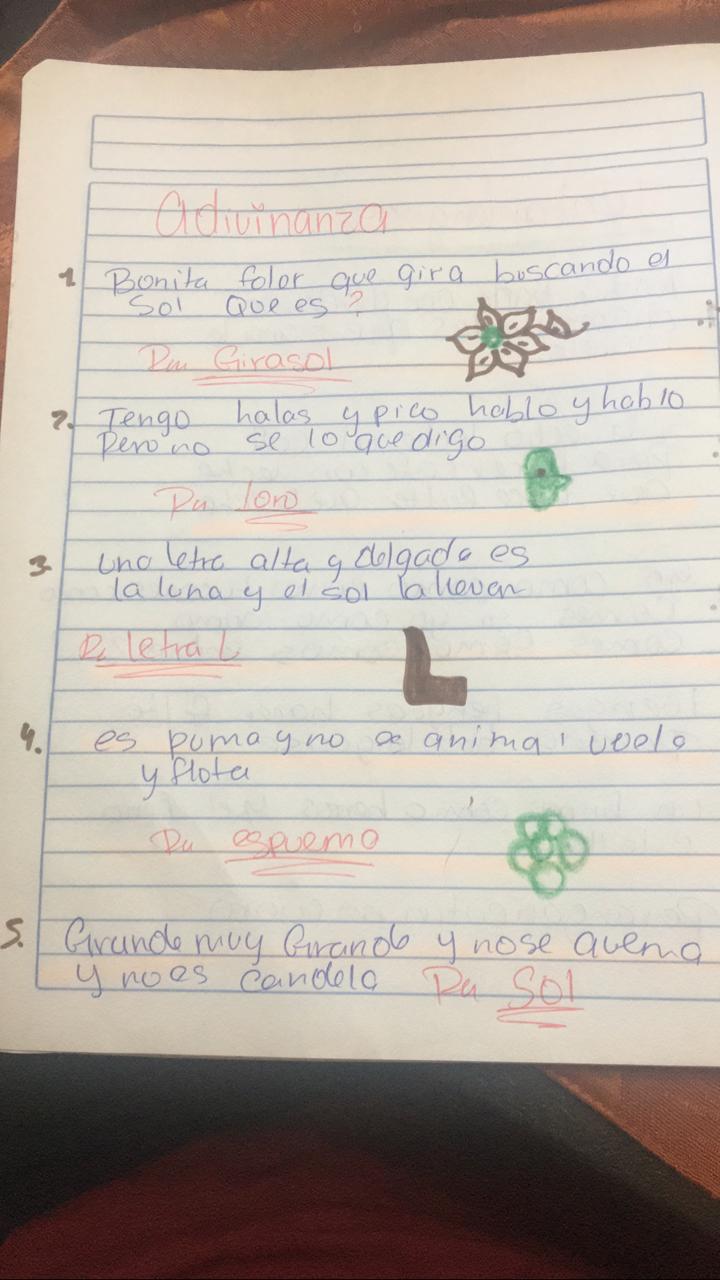 Adivinanza
1 Bonita folor que gira buscando el
Sol Que es ?
Girasol
2. Tengo halas y pico hablo y hablo
Pero no se lo que digo
loro
3 una letra alta y delgada es
la luna y el sol la llevan
letra L
4. es puma y no es animal vuela
y flota
espuema
5. Grande muy Grande y nose quema
y no es candela Sol